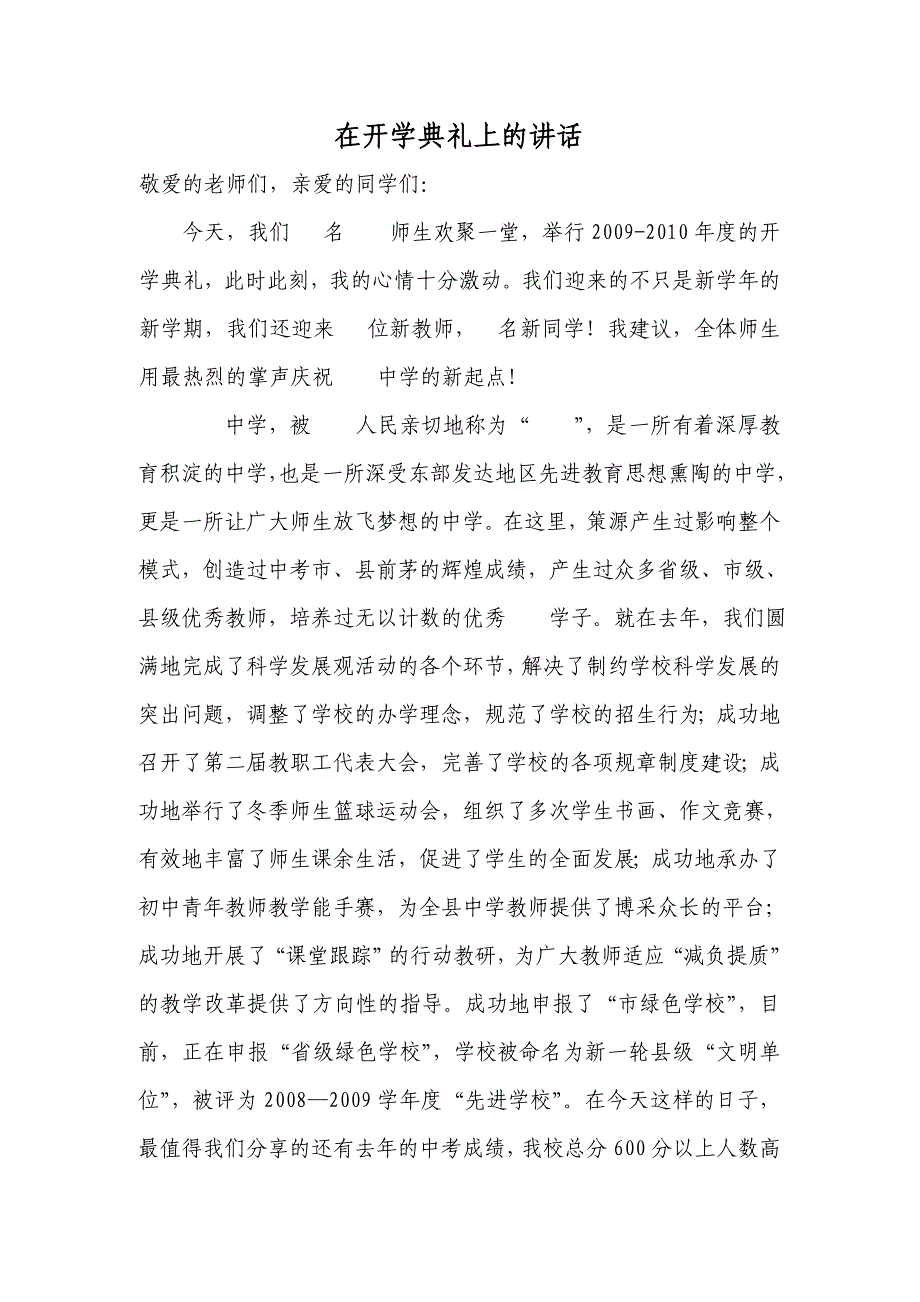 在开学典礼上的讲话
敬爱的老师们，亲爱的同学们：
今天，我们 名 师生欢聚一堂，举行 2009-2010 年度的开
学典礼，此时此刻，我的心情十分激动。我们迎来的不只是新学年的
新学期，我们还迎来 位新教师， 名新同学！我建议，全体师生
用最热烈的掌声庆祝 中学的新起点！
中学，被 人民亲切地称为“ ”，是一所有着深厚教
育积淀的中学，也是一所深受东部发达地区先进教育思想熏陶的中学，
更是一所让广大师生放飞梦想的中学。在这里，策源产生过影响整个
模式，创造过中考市、县前茅的辉煌成绩，产生过众多省级、市级、
县级优秀教师，培养过无以计数的优秀 学子。就在去年，我们圆
满地完成了科学发展观活动的各个环节，解决了制约学校科学发展的
突出问题，调整了学校的办学理念，规范了学校的招生行为；成功地
召开了第二届教职工代表大会，完善了学校的各项规章制度建设；成
功地举行了冬季师生篮球运动会，组织了多次学生书画、作文竞赛，
有效地丰富了师生课余生活，促进了学生的全面发展；成功地承办了
初中青年教师教学能手赛，为全县中学教师提供了博采众长的平台；
成功地开展了“课堂跟踪”的行动教研，为广大教师适应“减负提质”
的教学改革提供了方向性的指导。成功地申报了“市绿色学校”，目
前，正在申报“省级绿色学校”，学校被命名为新一轮县级“文明单
位”，被评为 2008—2009 学年度“先进学校”。在今天这样的日子，
最值得我们分享的还有去年的中考成绩，我校总分 600 分以上人数高